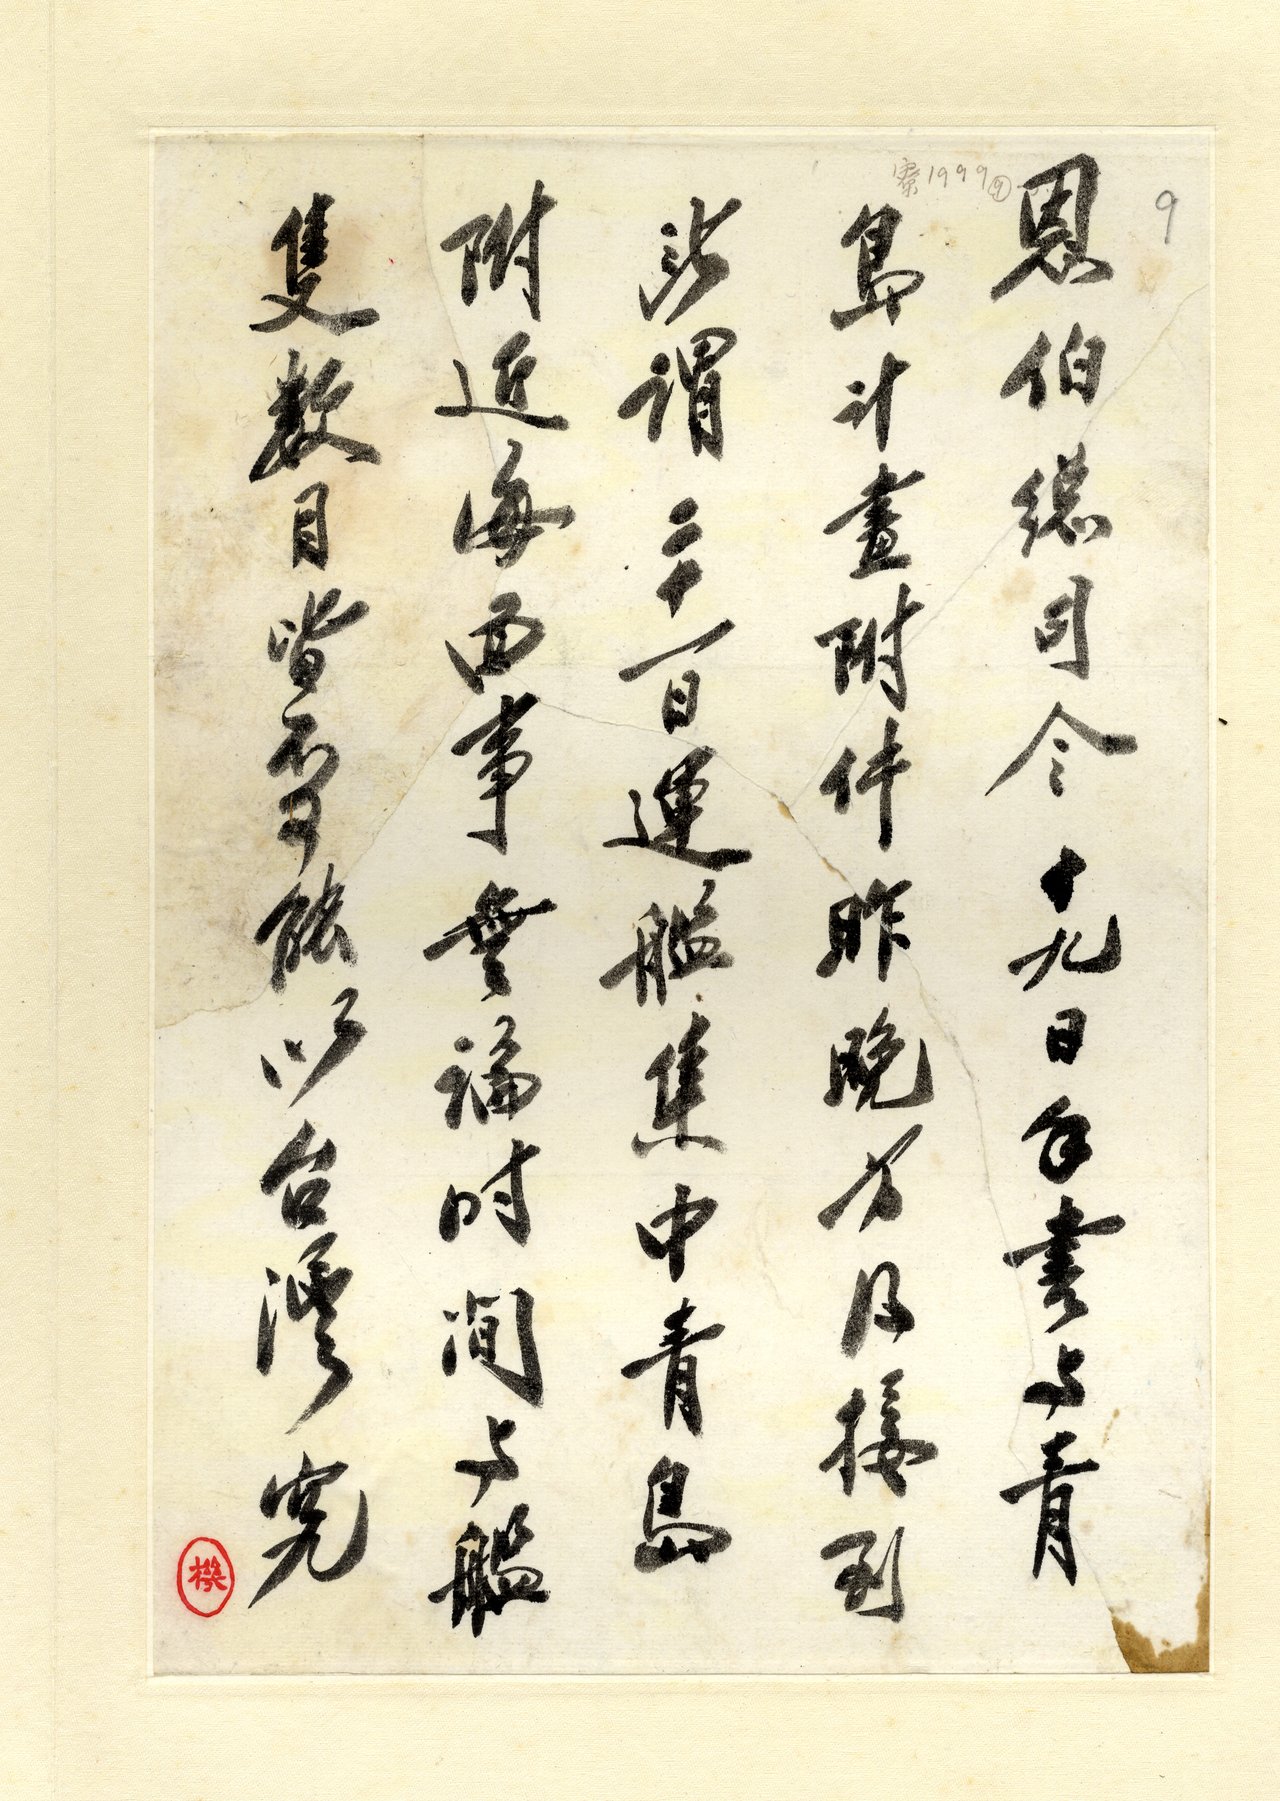 9
寮1999⑨
恩伯總司令十九日手書与青
島計畫附件昨晚方得接到
所謂二十一百運艦集中青島
附近海面事無論時間与艦
隻數目皆不可能以台灣究